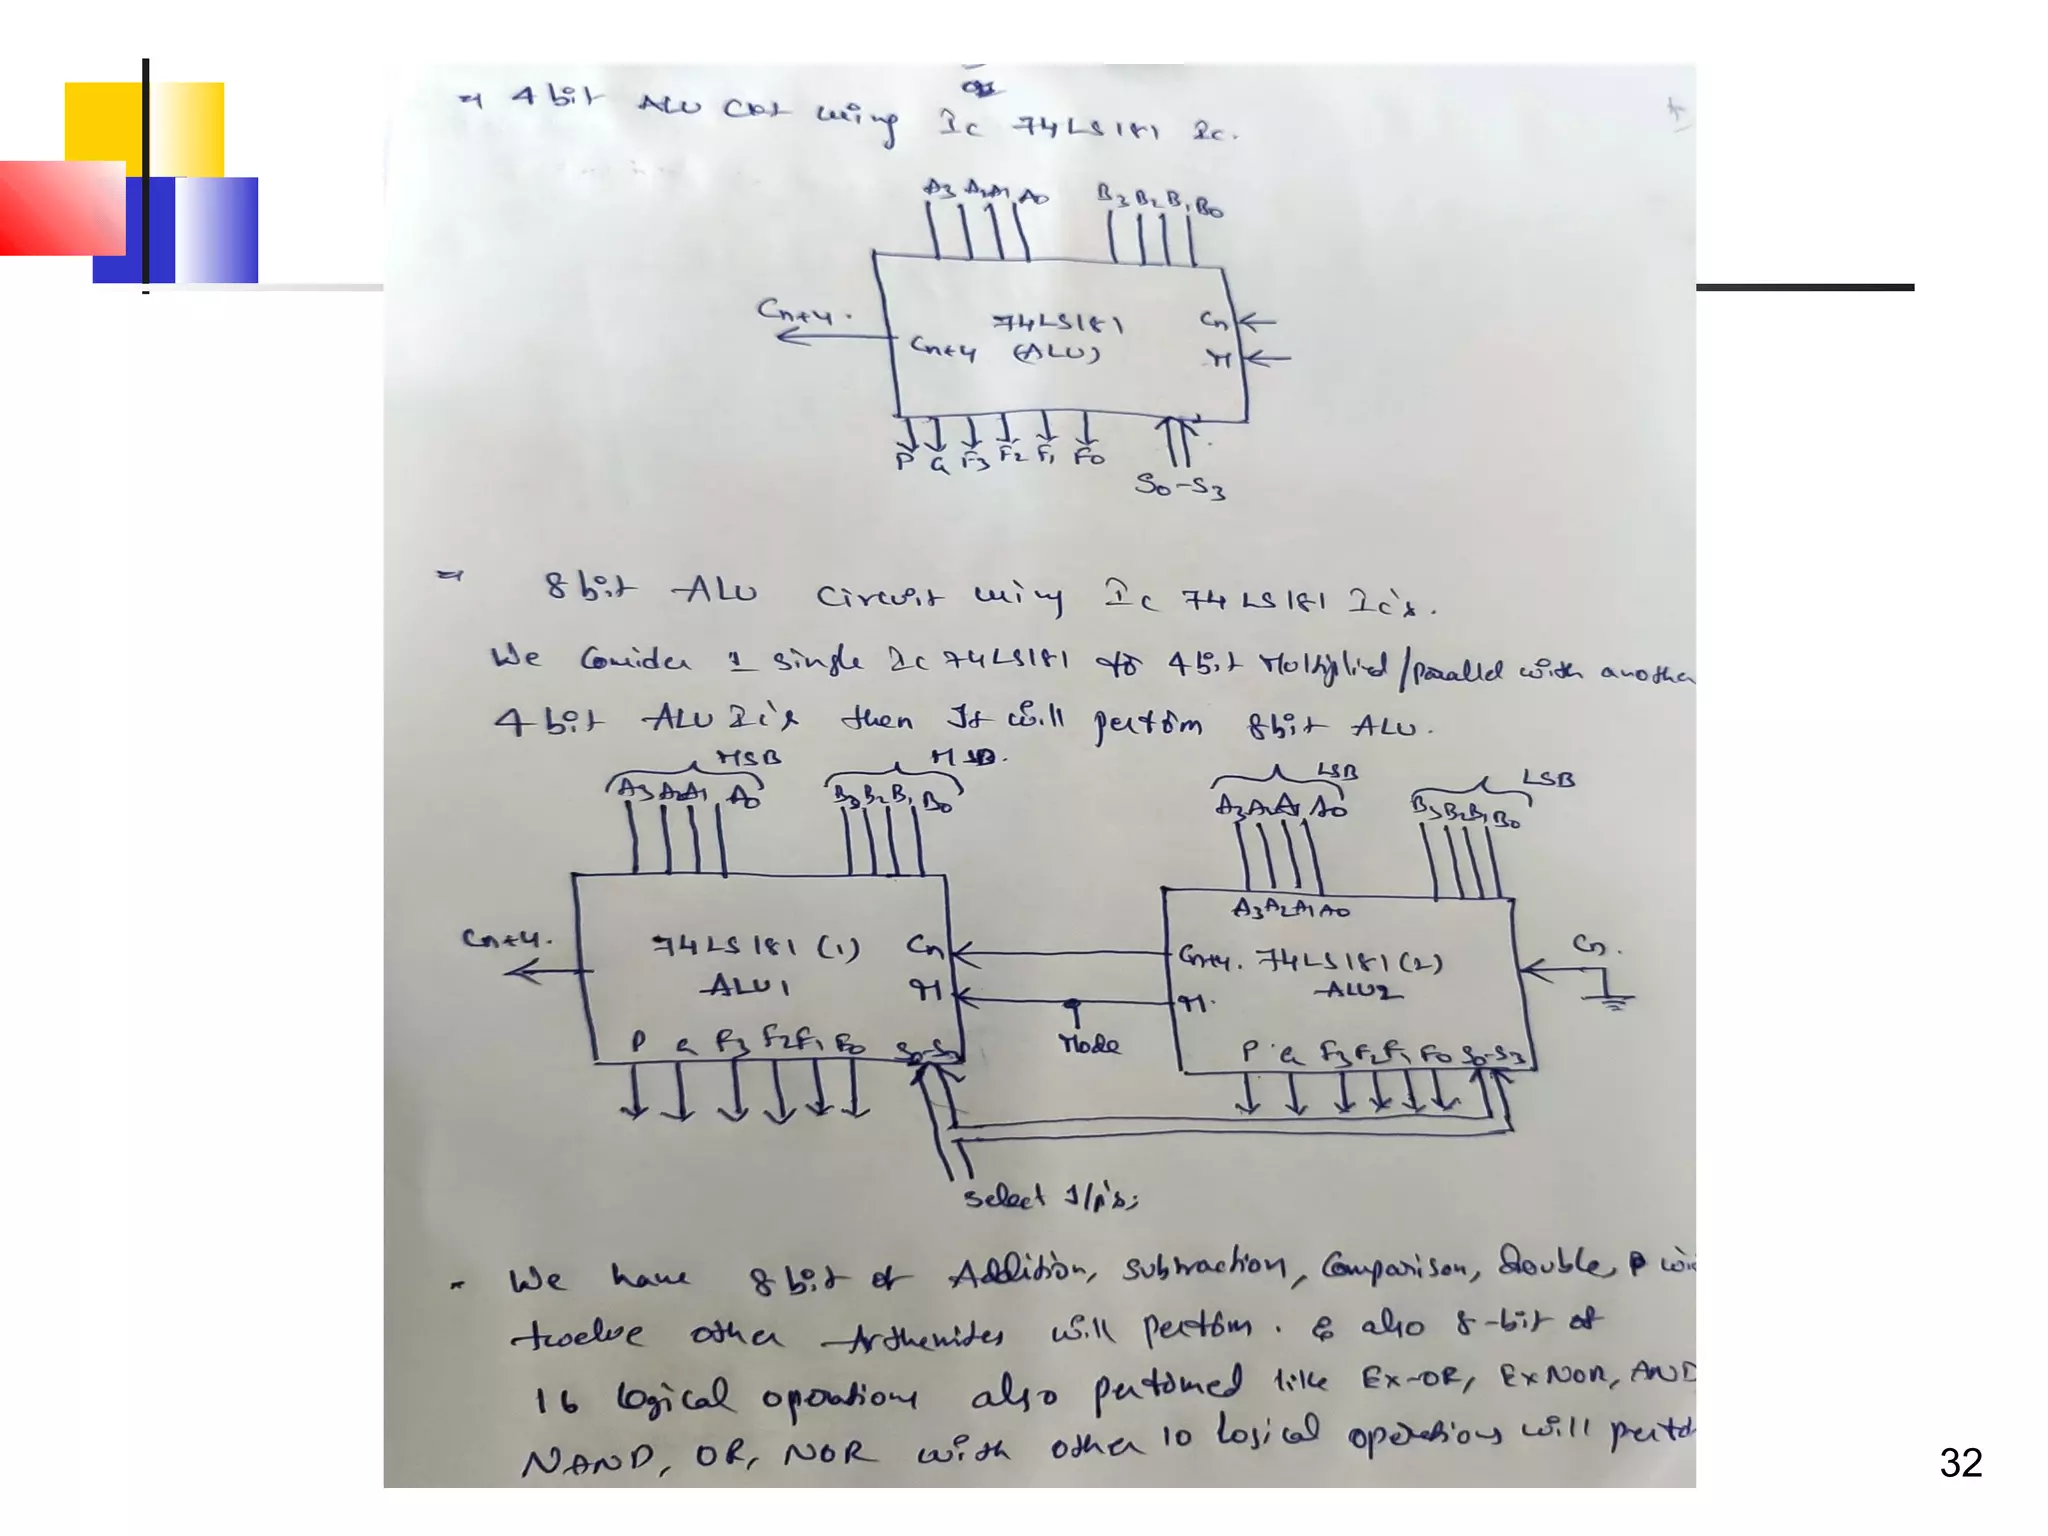 ⇒ 4 bit ALU Ckt using Ic 74LS181 Ic.
A3 A2 A1 A0 B3 B2 B1 B0
Cn+4. 74LS181 Cn
Cn+4 (ALU) M
P G F3 F2 F1 F0
S0-S3
⇒ 8 bit ALU Circuit using Ic 74LS181 Ic's.
We Consider 1 single Ic 74LS181 for 4 bit Multiplied/parallel with another
4 bit ALU Ic's then It will perform 8bit ALU.
MSB MSB. LSB LSB
A3 A2 A1 A0 B3 B2 B1 B0 A3 A2 A1 A0 B3 B2 B1 B0
A3 A2 A1 A0
Cn+4. 74LS181 (1) Cn Cn+4. 74LS181 (2) Cn.
ALU1 M M. ALU2
P G F3 F2 F1 F0 S0-S3 Mode P G F3 F2 F1 F0 S0-S3
Select I/p's;
- We have 8 bit of Addition, Subtraction, Comparison, Double,
twelve other Arthemites will perform. & also 8-bit of
16 logical operations also performed like Ex-OR, ExNOR, AND
NAND, OR, NOR with other 10 logical operations will
32